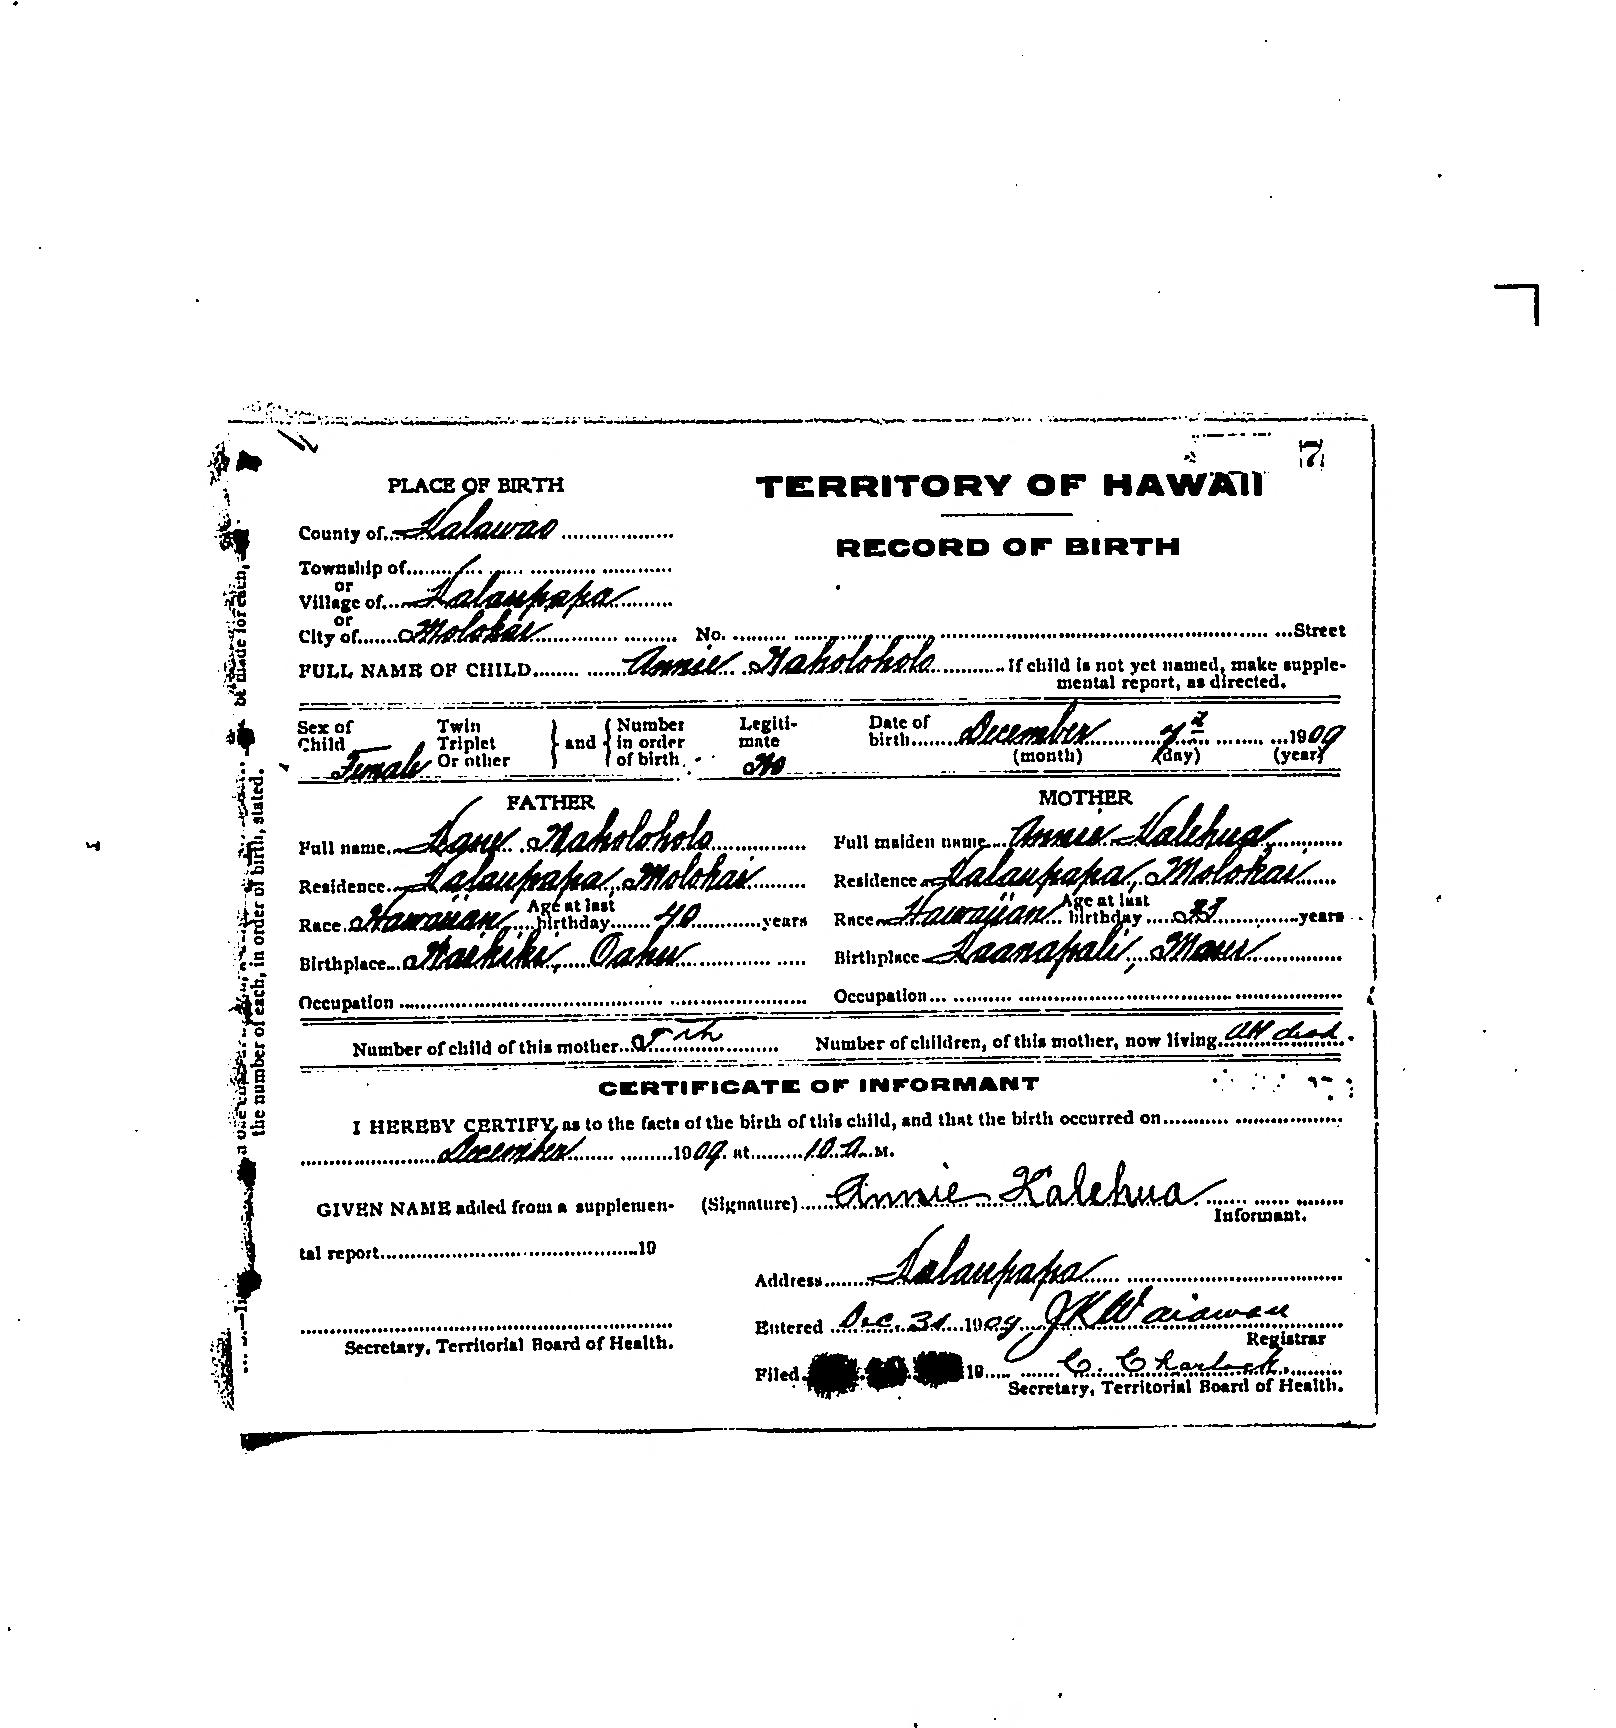 7
PLACE OF BIRTH
TERRITORY OF HAWAII
County of Kalawao
RECORD OF BIRTH
Township of
or
Village of Kalaupapa
or
City of Molokai No. Street
FULL NAME OF CHILD Annie Naholoholo If child is not yet named, make supple-
mental report, as directed.
Sex of Child Female Twin Triplet Or other } and { Number in order of birth Legiti-mate No Date of birth December 7 1909
(month) (day) (year)
FATHER
MOTHER
Full name Naholoholo
Full maiden name Annie Kalehua
Residence Kalaupapa, Molokai
Residence Kalaupapa, Molokai
Race Hawaiian Age at last birthday 40 years
Race Hawaiian Age at last birthday years
Birthplace Waikiki, Oahu
Birthplace Kaanapali, Maui
Occupation
Occupation
Number of child of this mother 5th
Number of children, of this mother, now living all dead.
CERTIFICATE OF INFORMANT
I HEREBY CERTIFY, as to the facts of the birth of this child, and that the birth occurred on
December 1909. at 10 A. M.
GIVEN NAME added from a supplemen-
(Signature) Annie Kalehua
Informant.
tal report 19
Address Kalaupapa
Entered Dec. 31 1909 J K Waiawau
Registrar
Secretary, Territorial Board of Health.
Filed 19 C. Charlock.
Secretary, Territorial Board of Health.
be made for each,
the number of each, in order of birth, stated.